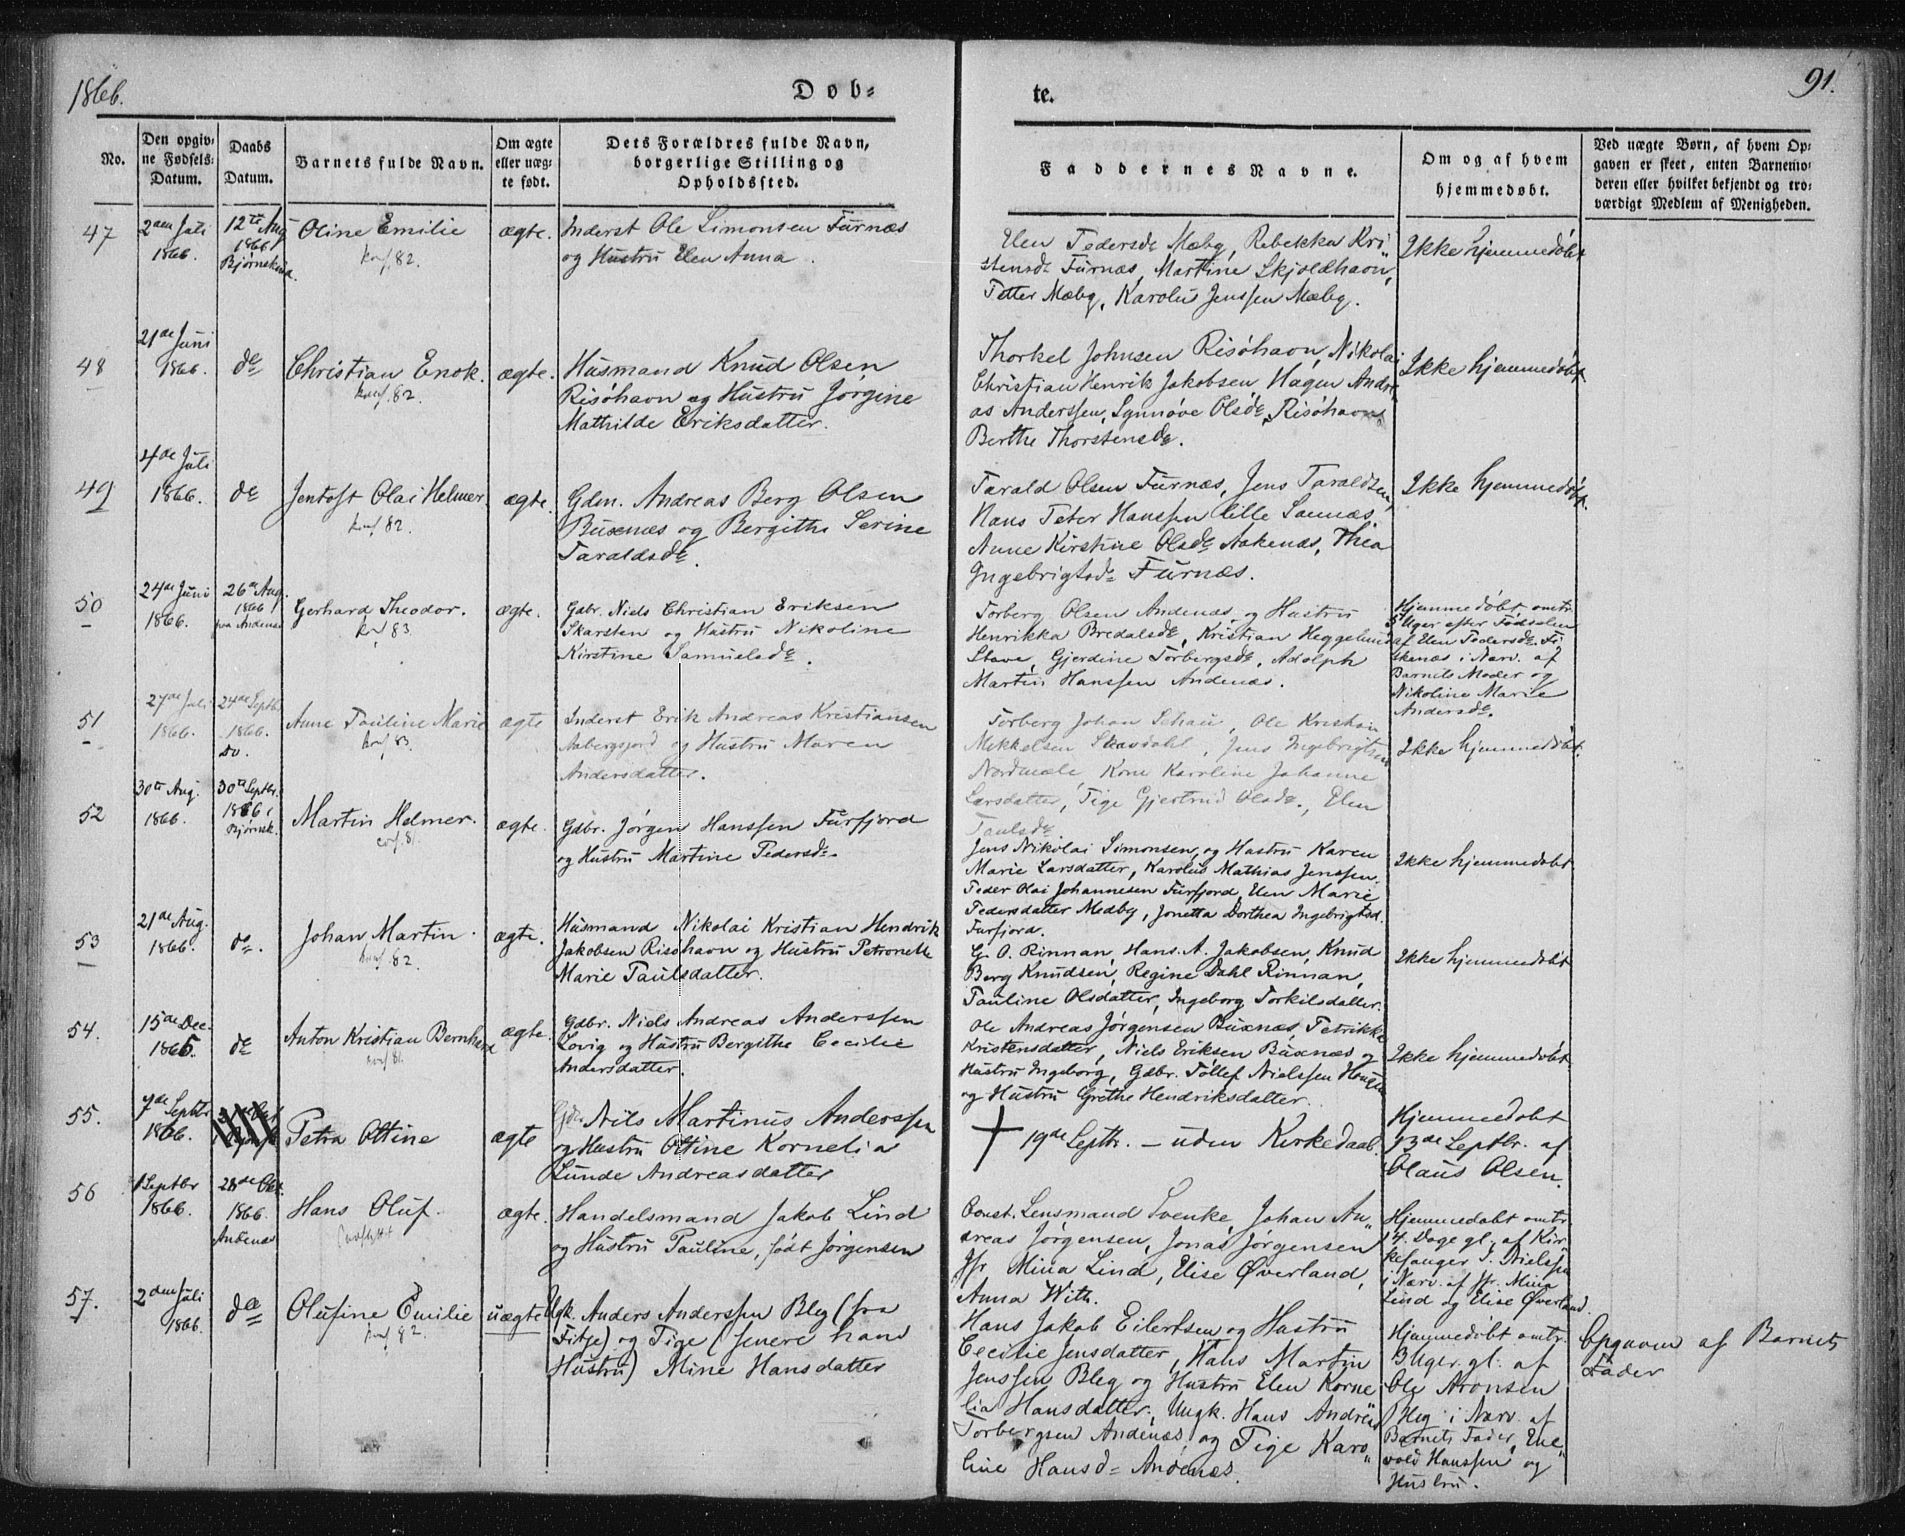 1866.
Døb-
te.
91.
No.
Den opgiv-
ne Fødsels-
Datum.
Daabs
Datum.
Barnets fulde Navn.
Om ægte
eller uæg-
te født.
Dets Forældres fulde Navn,
borgerlige Stilling og
Opholdssted.
Faddernes Navne.
Om og af hvem
hjemmedøbt.
Ved uægte Børn, af hvem Op-
gaven er skeet, enten Barnemo-
deren eller hvilket bekjendt og tro-
værdigt Medlem af Menigheden.
47
2den Juli
1866.
12te Aug
1866
Bjørnskind.
Oline Emilie
konf. 82.
ægte.
Inderst Ole Simonsen Furnæs
og Hustru Elen Anna.
Elen Pedersdr Mæby, Rebekka Kri-
stensdr Furnæs, Martine Skjoldhavn,
Petter Mæby, Karolus Jenssen Mæby.
Ikke hjemmedøbt
48
21de Juni
1866.
do
Christian Enok.
konf. 82.
ægte.
Husmand Knud Olsen
Risøhavn og Hustru Jørgine
Mathilde Eriksdatter.
Thorkel Johnsen Risøhavn, Nikolai
Christian Henrik Jakobsen, Hagen Andre-
as Anderssen, Synnøve Olsdr Risøhavn,
Berthe Thorstensdr.
Ikke hjemmedøbt
49
4de Juli
1866.
do
Jentoft Olai Helmer
konf 82.
ægte.
Gdm. Andreas Berg Olsen
Buxnæs og Bergithe Serine
Taraldsdr.
Tarald Olsen Furnæs, Jens Taraldsen,
Hans Peter Hanssen Lille
Anne Kirstine Olsdr Aakenæs, Thea
Ingebrigtsdr Furnæs.
Ikke hjemmedøbt.
50
24de Juni
1866.
26de Aug.
1866
Andenæs
Gerhard Theodor.
83
ægte.
Gdbr. Niels Christian Eriksen
Skarsten og Hustru Nikoline
Kirstine Samuelsdr.
Torberg Olsen Andenæs og Hustru
Henrikka Bredalsdr, Kristian Heggelund
Stave, Gjerdine Torbergsdr, Adolph
Martin Hanssen Andenæs.
Hjemmedøbt omtr.
5 Uger efter Fødselen
af Elen Pedersdr Fi-
skenæs i Nærv. af
Barnets Moder og
Nikoline Marie
Andersdr.
51
27de Juli
1866.
24de Septbr
1866.
Do.
Anne Pauline Marie
konf 83.
ægte
Inderst Erik Andreas Kristiansen
Aabergsjord og Hustru Maren
Andersdatter.
Torberg Johan Schau, Ole Kristian
Mikkelsen Skavdahl, Jens Ingebrigtsen
Nordmæle, Kone Karoline Johanne
Larsdatter, Pige Gjertrud Olsdr., Elen
Paulsdr
Ikke hjemmedøbt.
52
30te Aug.
1866.
30te Septbr.
1866 i
Bjørnsk.
Martin Helmer.
conf. 81.
ægte.
Gdbr. Jørgen Hanssen Furfjord
og Hustru Martine Pedersdr.
Jens Nikolai Simonsen, og Hustru Karen
Marie Larsdatter, Karolus Mathias Jenssen.
Peder Olai Johannesen Furfjord, Elen Marie
Pedersdatter Medby, Jonetta Dorthea Ingebrigtsd.
Furfjord.
Ikke hjemmedøbt.
53
21de Aug.
1866.
do.
Johan Martin.
konf. 82
ægte.
Husmand Nikolai Kristian Hendrik
Jakobsen Risøhavn og Hustru Petronelle
Marie Paulsdatter.
G. O. Rinnan, Hans A. Jakobsen, Knud
Berg Knudsen, Regine Dahl Rinnan,
Pauline Olsdatter, Ingeborg Torkilsdatter.
Ikke hjemmedøbt.
54.
15de Dec.
1865.
do
Anton Kristian Bernhard
konf 81.
ægte.
Gdbr. Niels Andreas Anderssen
Lovig og Hustru Bergithe Cecilie
Andersdatter.
Ole Andreas Jørgensen Buxnæs, Petrikke
Kristensdatter, Niels Eriksen Buxnæs og
Hustru Ingeborg, Gdbr. Tollef Nielssen Haugen
og Hustru Grethe Hendriksdatter.
Ikke hjemmedøbt.
55.
7de Septbr
1866.
Petra Ottine
ægte
Gdr. Nils Martinus Anderssen
og Hustru Ottine Kornelia
Lunde Andreasdatter
19de Septbr. – uden Kirkedaab.
Hjemmedøbt
13de Septbr. af
Olaus Olsen.
56
Septbr
1866.
28de Okt.
1866.
Andenæs
Hans Oluf.
ægte.
Handelsmand Jakob Lind
og Hustru Pauline, født Jørgensen
Const. Lensmand Svenke, Johan An-
dreas Jørgensen, Jonas Jørgensen
Jfr Mina Lind, Elise Øverland,
Anna With.
Hjemmedøbt omtr.
14 Dage gl. af Kir-
kesanger J. Nielssen
i Nærv. af Jfr. Mina
Lind og Elise Øverland.
57.
2den Juli
1866.
do
Olufine Emilie
konf 82.
uægte
Ugk. Anders Anderssen Bleg (fra
Fitje) og Pige (senere hans
Hustru) Mine Hansdatter
Hans Jakob Eilertsen og Hustru
Cecilie Jensdatter, Hans Martin
Jenssen Bleg og Hustru Elen Korne
lia Hansdatter, Ungk. Hans Andreas
Torbergsen Andenæs og Pige Karo-
line Hansd. Andenæs.
Hjemmedøbt omtr.
3 Uger gl. af
Ole Aronsen
Bleg i Nærv. af
Barnets Fader, Ene-
vold Hanssen og
Hustru.
Opgaven af Barnets
Fader